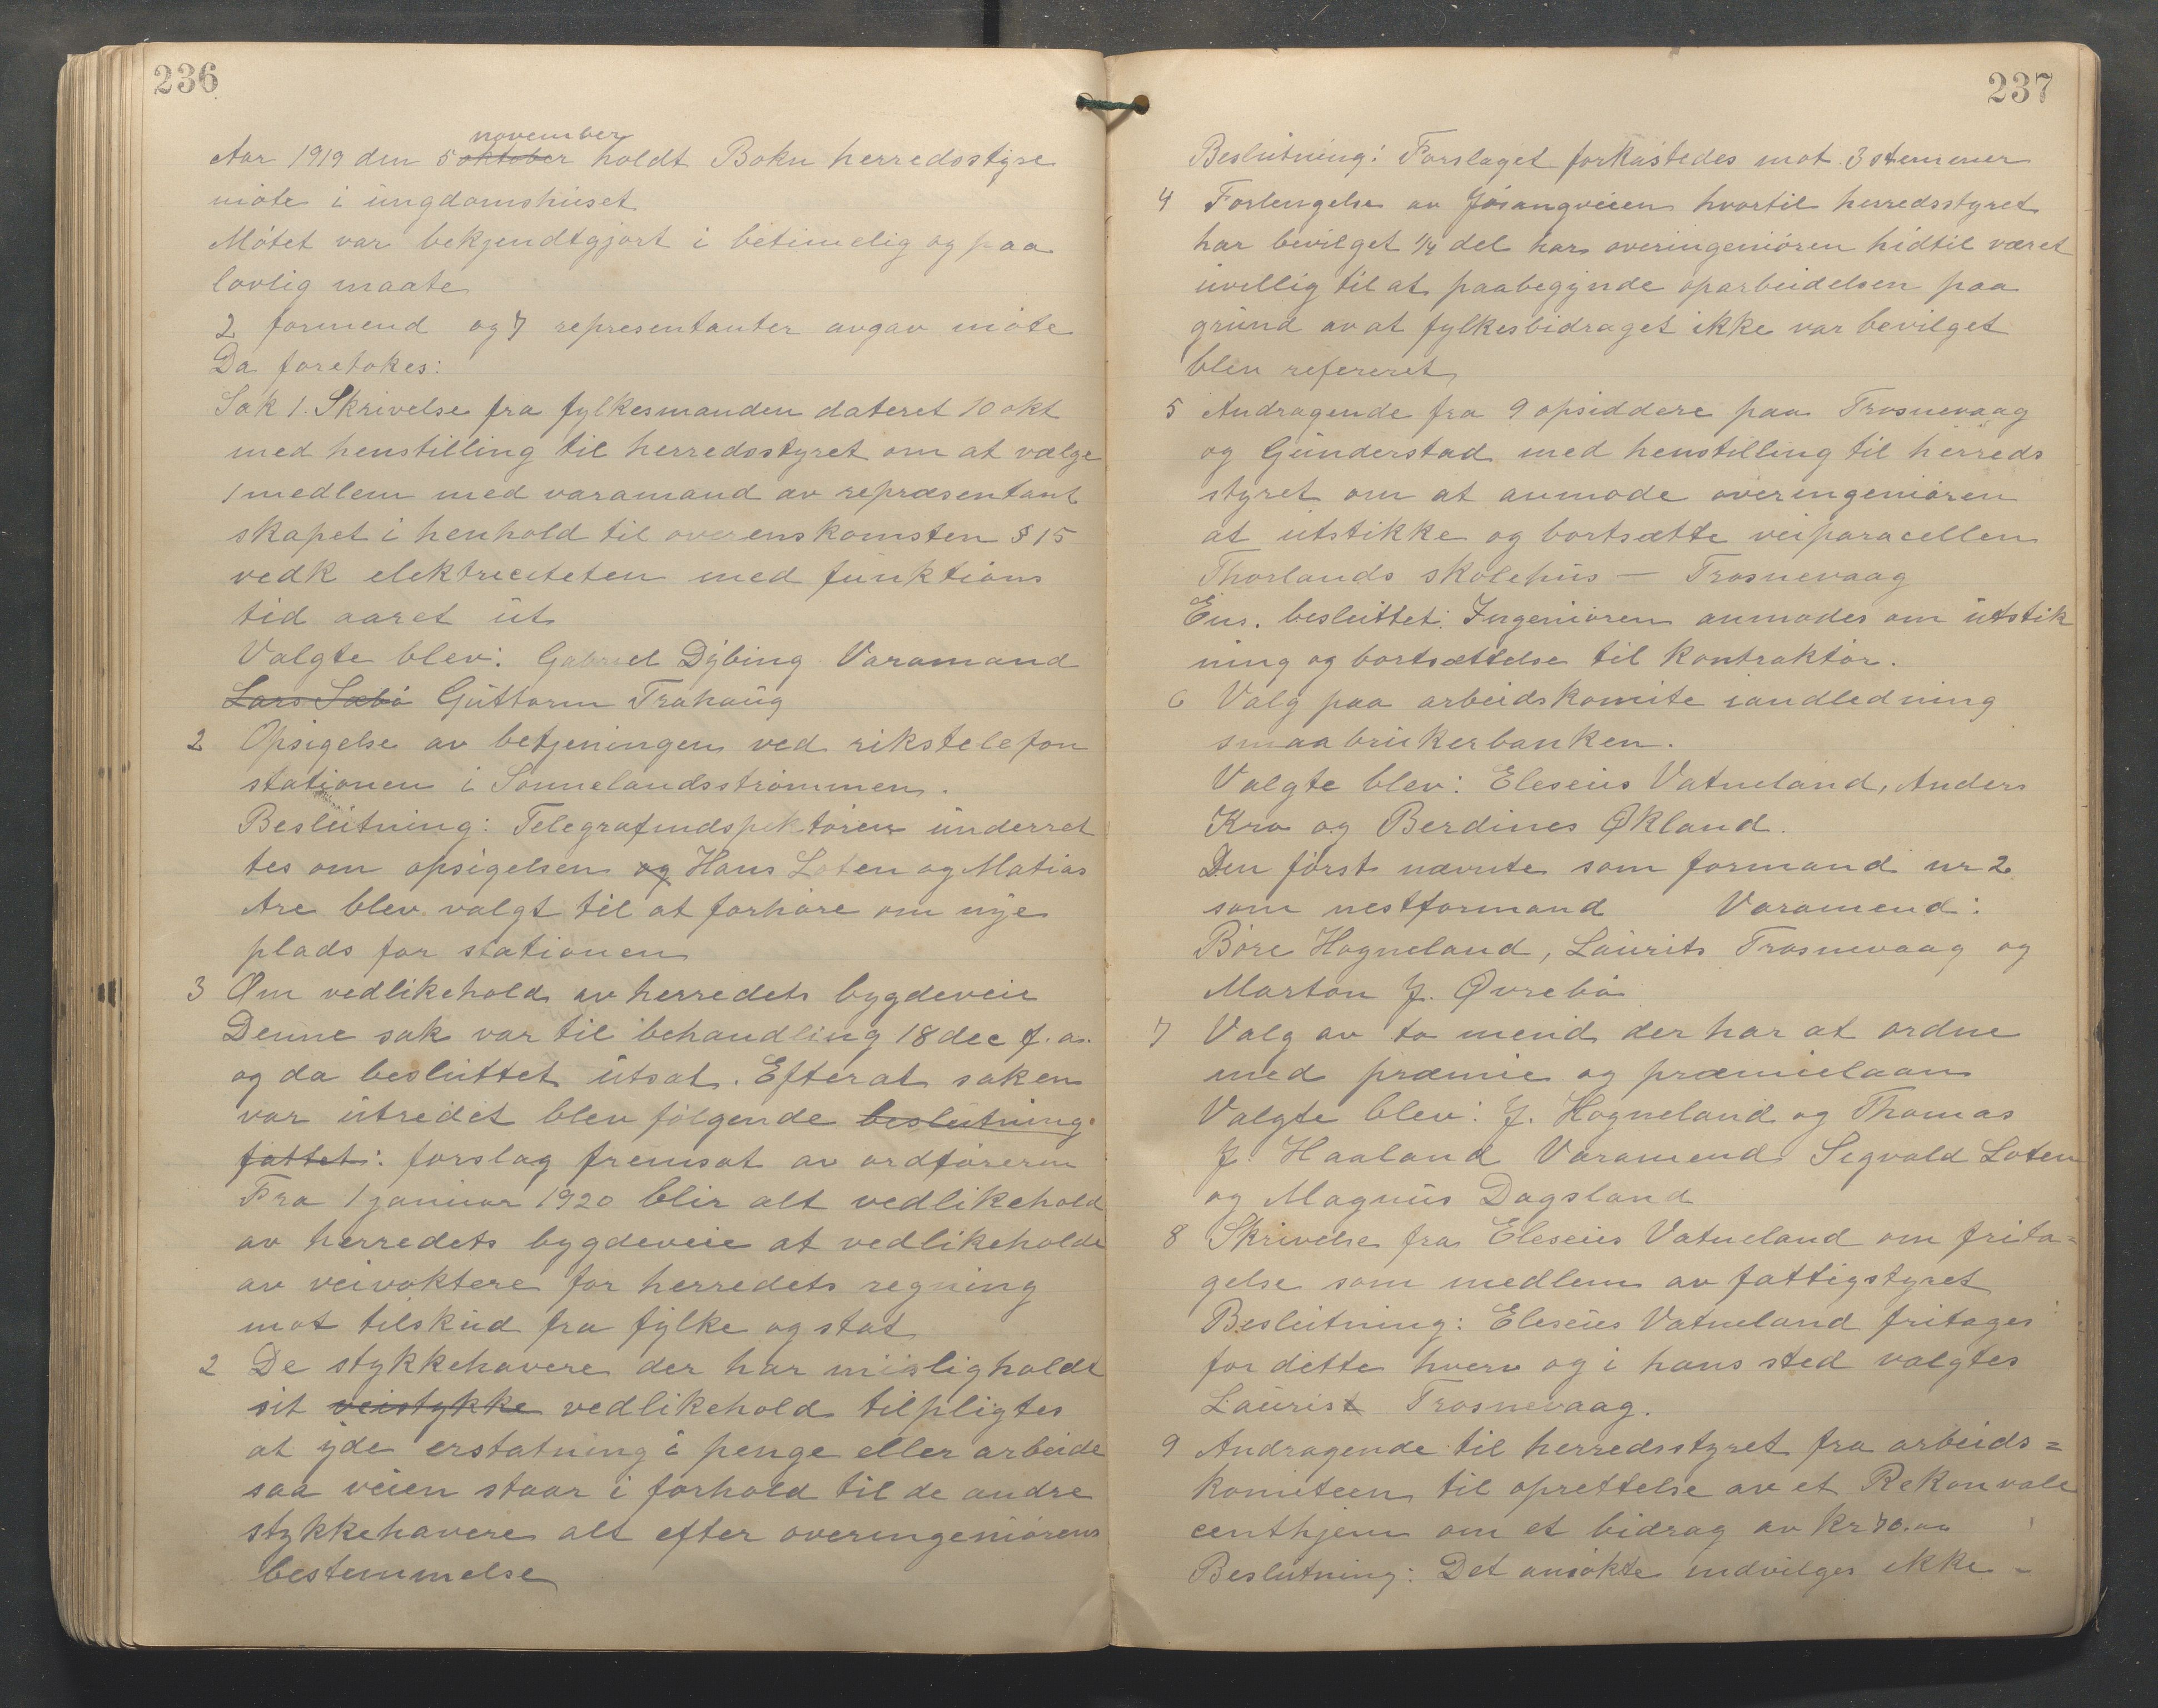 236
november
Aar 1919 den 5 oktober holdt Bokn herredsstyre
møte i ungdomshuset
Møtet var bekjendtgjort i betimelig og paa
lovlig maate
2 formend og 7 representanter avgav møte
Da foretokes:
Sak 1. Skrivelse fra fylkesmanden dateret 10 okt
med henstilling til herredsstyret om at vælge
1 medlem med varamand av repræsentant
skapet i henhold til overenskomsten § 15
vedk elektriciteten med funktions
tid aaret ut
Valgte blev: Gabriel Dybing Varamand
Lars Sæbø Guttorm Trohaug
2 Opsigelse av betjeningen ved rikstelefon
stationen i Sonnelandsstrømmen.
Beslutning: Telegrafindspektøren underret
tes om opsigelsen og Hans Loten og Matias
Are blev valgt til at forhøre om nye
plads for stationen
3 Om vedlikehold av herredets bygdeveie
Denne sak var til behandling 18 dec f. a.
og da besluttet utsat. Efterat saken
var utredet blev følgende beslutning
fattet: forslag fremsat av ordføreren
Fra 1 januar 1920 blir alt vedlikehold
av herredets bygdeveie at vedlikeholde
av veivoktere for herredets regning
mot tilskud fra fylke og stat
2 De stykkehavere der har misligholdt
sit veistykke vedlikehold tilpligtes
at yde erstatning i penge eller arbeide
saa veien staar i forhold til de andre
stykkehavere alt efter overingeniørens
bestemmelse
237
Beslutning: Forslaget forkastedes mot 3 stemmer
4 Forlengelse av Jøsangveien hvortil herredsstyret
har bevilget 1/4 del har overingeniøren hidtil været
uvillig til at paabegynde oparbeidelsen paa
grund av at fylkesbidraget ikke var bevilget
blev refereret
5 Andragende fra 9 opsiddere paa Trosnevaag
og Gunderstad med henstilling til herreds
styret om at anmode overingeniøren
at utstikke og bortsætte veiparacellen
Thorlands skolehus — Trosnevaag
Ens. besluttet: Ingeniøren anmodes om utstik
ning og bortsættelse til kontraktør.
6 Valg paa arbeidskomite iandledning
smaabrukerbanken.
Valgte blev: Eleseus Vatneland, Anders
Kro og Berdines Økland.
Den først nævnte som formand nr 2
som nestformand Varamend:
Bore Hogneland, Laurits Trosnevaag og
Marton J. Øvrebø
7 Valg av to mend der har at ordne
med præmie og præmielaan
Valgte blev: J. Hogneland og Thomas
J. Haaland Varamend Segvald Loten
og Magnus Dagsland
8 Skrivelse fra Eleseus Vatneland om frita=
gelse som medlem av fattigstyret
Beslutning: Eleseus Vatneland fritages
for dette hverv og i hans sted valgtes
Laurist Trosnevaag.
9 Andragende til herredsstyret fra arbeids=
komiteen til oprettelse av et Rekonvale
centhjem om et bidrag av kr 70.00
Beslutning: Det ansøkte indvilges ikke -